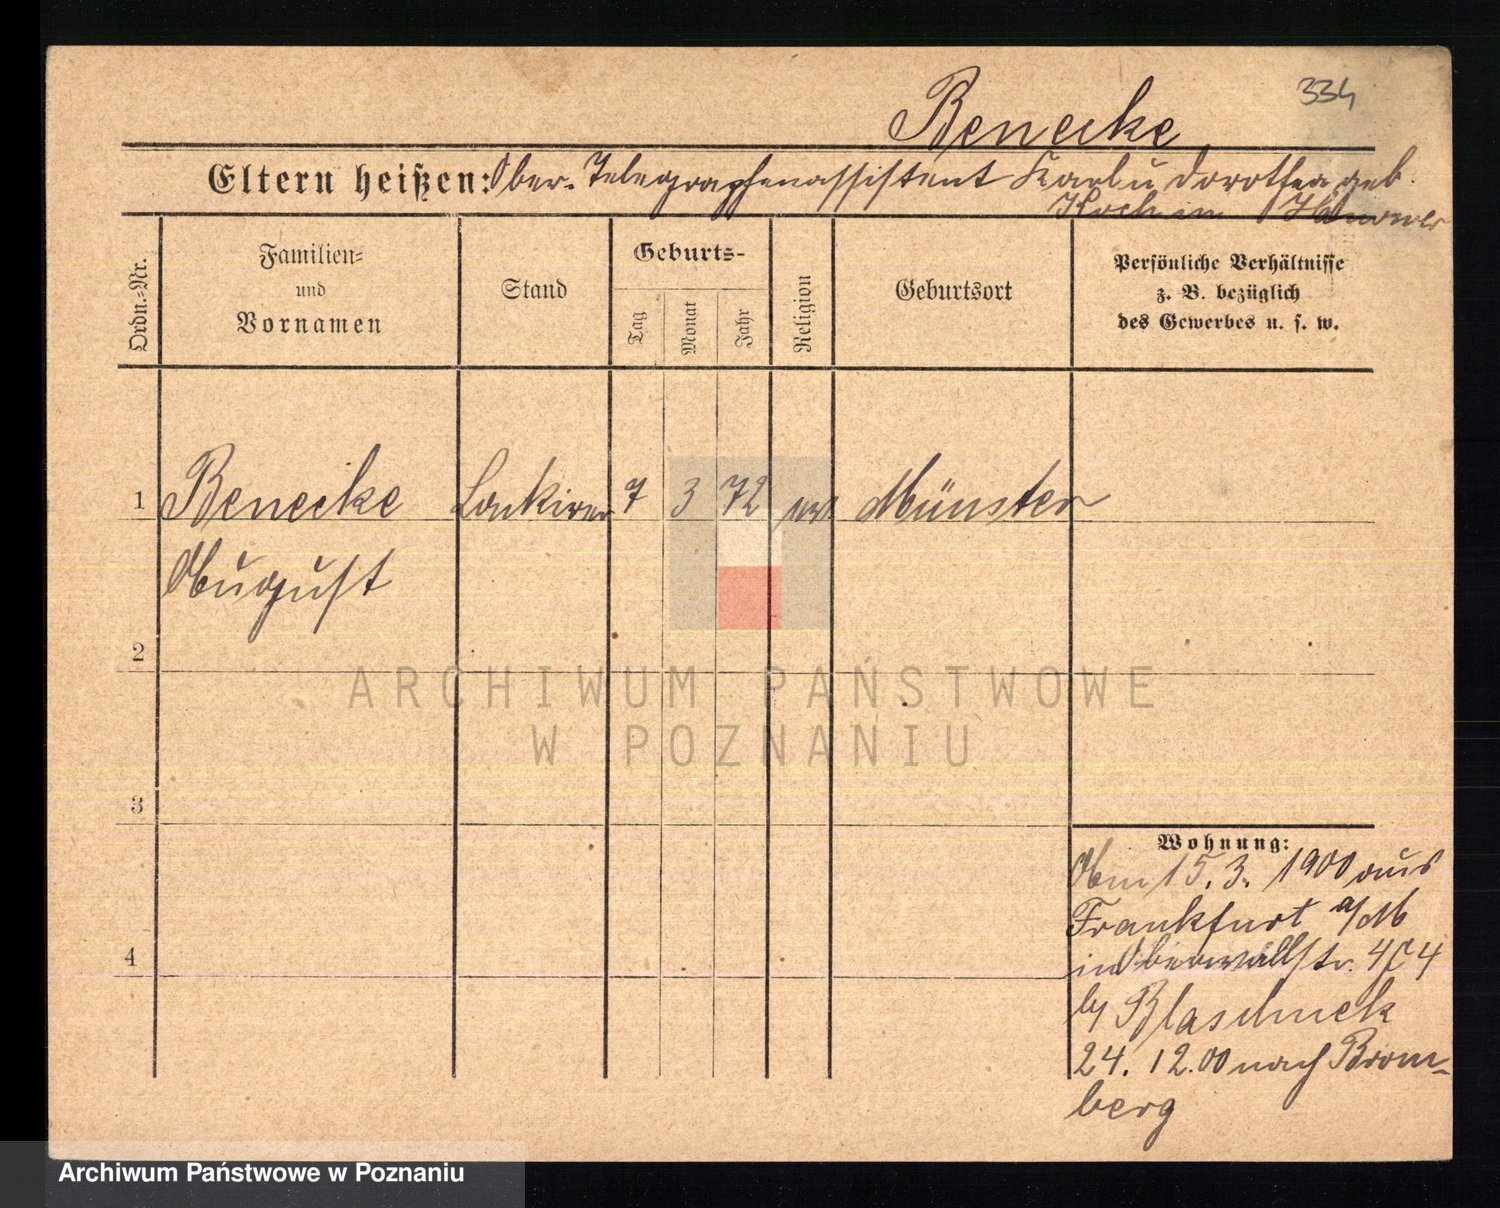 334
Benecke
Eltern heißen: Ober-Telegraphenassistent Karl u Dorothea geb.
Koch in Hannover
Ordn.-Nr.
Familien-
und
Vornamen
Stand
Geburts-
Tag
Monat
Jahr
Religion
Geburtsort
Persönliche Verhältnisse
z. B. bezüglich
des Gewerbes u. s. w.
1 Benecke 7 3 72 Münster
August
2
ARCHIWUM PAŃSTWOWE
W POZNANIU
3
Wohnung:
Am 15. 3. 1900 aus
Frankfurt a/M
in Oberwallstr. 4
b/ Blaschnek
4
24. 12.00 nach Brom-
berg
Archiwum Państwowe w Poznaniu